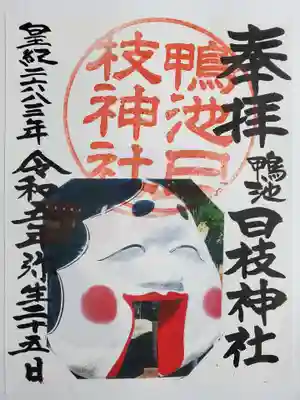 奉拝
鴨池
日枝神社
鴨池日
枝神社
皇紀二六八三年令和五年弥生二十五日